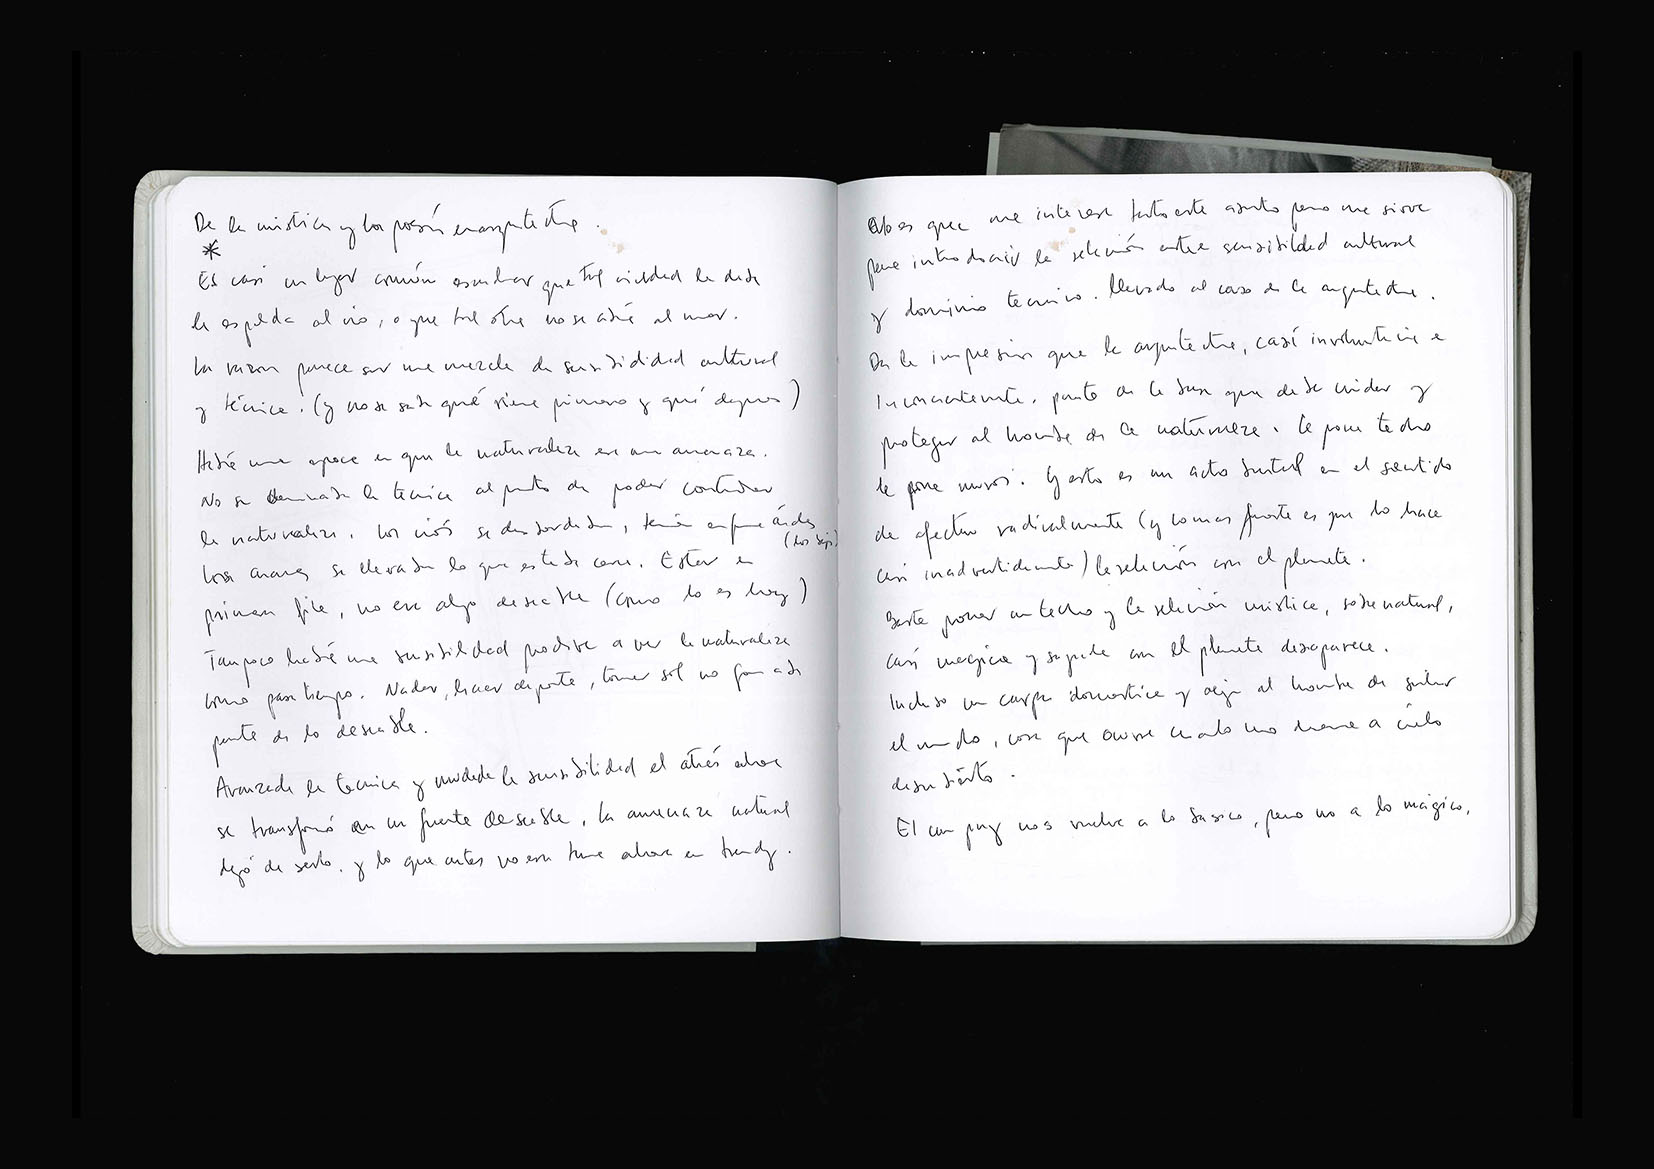 De la mística y la poesía en arquitectura.
*
Es casi un lugar común escuchar que tal ciudad le daba
la espalda al río, o que tal otra no se abría al mar.
La razón parece ser una mezcla de sensibilidad cultural
y técnica. (y no se sabe qué viene primero y qué después)
Había una época en que la naturaleza era una amenaza.
No se dominaba la técnica al punto de poder controlar
la naturaleza. Los ríos se desbordaban, tenían
(los bajos)
los mares se llevaban lo que estaba cerca. Estar en
primera fila, no era algo deseable (como lo es hoy)
Tampoco había una sensibilidad proclive a ver la naturaleza
como pasatiempo. Nadar, hacer deporte, tomar sol no formaba
parte de lo deseable.
Avanzada la técnica y mudada la sensibilidad el atrás ahora
se transformó en un frente deseable, la amenaza natural
dejó de serlo. y lo que antes no era tema ahora es trendy.
No es que me interese tanto este asunto pero me sirve
para introducir la relación entre sensibilidad cultural
y dominio técnico. llevado al caso de la arquitectura.
Da la impresión que la arquitectura, casi involuntaria e
inconscientemente, parte de la base que debe cuidar y
proteger al hombre de la naturaleza. le pone techo
le pone muros. Y esto es un acto brutal en el sentido
de afectar radicalmente (y lo mas fuerte es que lo hace
casi inadvertidamente) la relación con el planeta.
Basta poner un techo y la relación mística, sobrenatural,
casi mágica y sagrada con el planeta desaparece.
Incluso un carpa domestica y aleja al hombre de
el mundo, cosa que ocurre cuando uno duerme a cielo
descubierto.
El camping nos vuelve a lo basico, pero no a lo mágico,